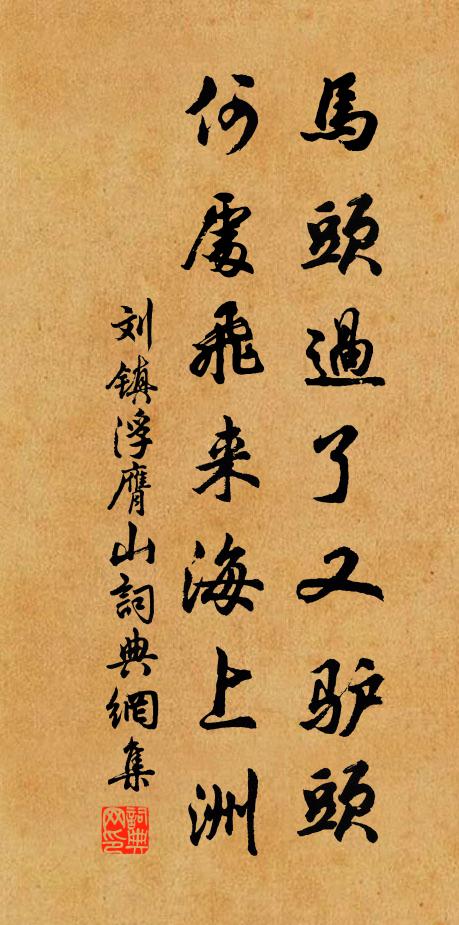 馬頭過了又驴頭
何處飛来海上洲
刘镇浮膺山詞典網集
詞典网印